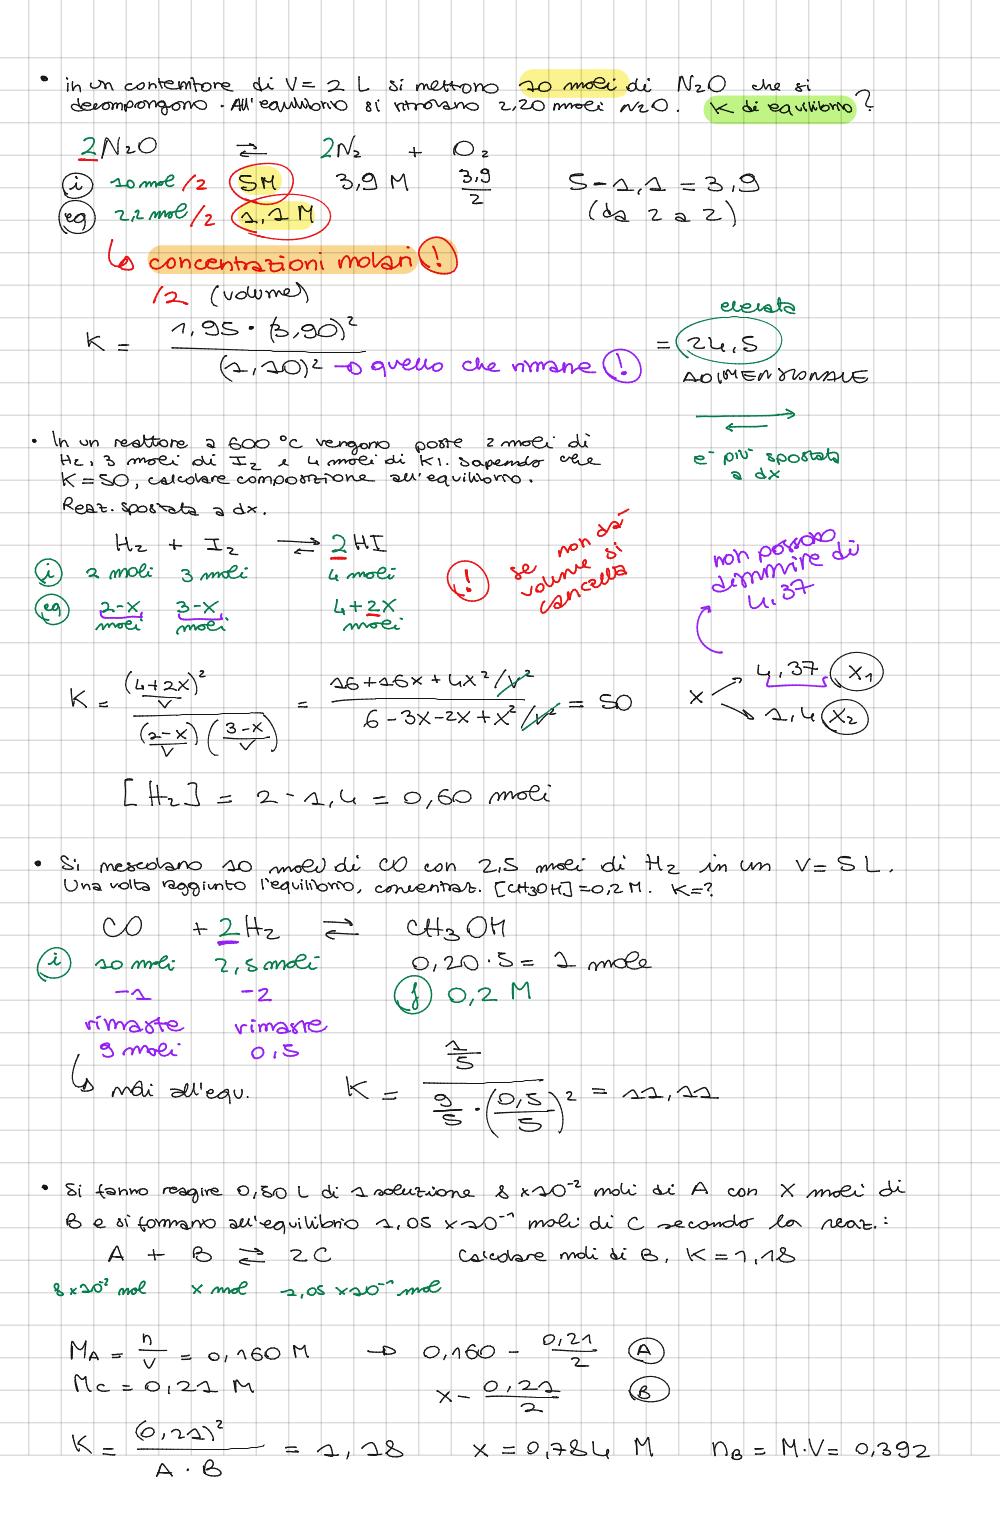 • in un contenitore di V= 2 L si mettono 10 moli di N₂O che si
decompongono. All'equilibrio si ritrovano 2,20 moli N₂O. K di equilibrio?
2N₂O ⇄ 2N₂ + O₂
(i) 10 mol/2 5M 3,9 M 3,9/2 5-1,1 = 3,9
(eq) 2,2 mol/2 1,1 M (da 2 a 2)
↳ concentrazioni molari (!)
/2 (volume)
elevata
K = 1,95 · (3,90)² / (1,10)² → quello che rimane (!) = 24,5
ADIMENSIONALE
e^- più spostata
a dx
• In un reattore a 600 °C vengono poste 2 moli di
H₂, 3 moli di I₂ e 4 moli di KI. Sapendo che
K=50, calcolare composizione all'equilibrio.
Reaz. spostata a dx.
H₂ + I₂ ⇄ 2HI
(i) 2 moli 3 moli 4 moli
(eq) 2-x moli 3-x moli 4+2x moli
(!) se non dà
volume si
cancella
non possono
diminuire di
4,37
K = ((4+2x)/V)² / ((2-x)/V) ((3-x)/V) = 16+16x+4x²/V² / 6-3x-2x+x²/V² = 50 x 4,37 (x₁)
1,4 (x₂)
[H₂] = 2 - 1,4 = 0,60 moli
• Si mescolano 10 moli di CO con 2,5 moli di H₂ in un V= 5 L.
Una volta raggiunto l'equilibrio, concentraz. [CH3OH]=0,2 M. K=?
CO + 2H₂ ⇄ CH₃OH
(i) 10 moli 2,5 moli 0,20·5= 1 mole
-1 -2 (f) 0,2 M
rimaste rimaste
9 moli 0,5
↳ moli all'equ. K = 1/5 / 9/5 · (0,5/5)² = 11,11
• Si fanno reagire 0,50 L di 1 soluzione 8×10⁻² moli di A con X moli di
B e si formano all'equilibrio 1,05 ×10⁻¹ moli di C secondo la reaz.:
A + B ⇄ 2C Calcolare moli di B, K=1,18
8×10⁻² mol x mol 1,05 ×10⁻¹ mol
M_A = n/V = 0,160 M → 0,160 - 0,21/2 (A)
Mc = 0,21 M x - 0,21/2 (B)
K = (0,21)² / A · B = 1,18 x = 0,784 M n_B = M·V= 0,392